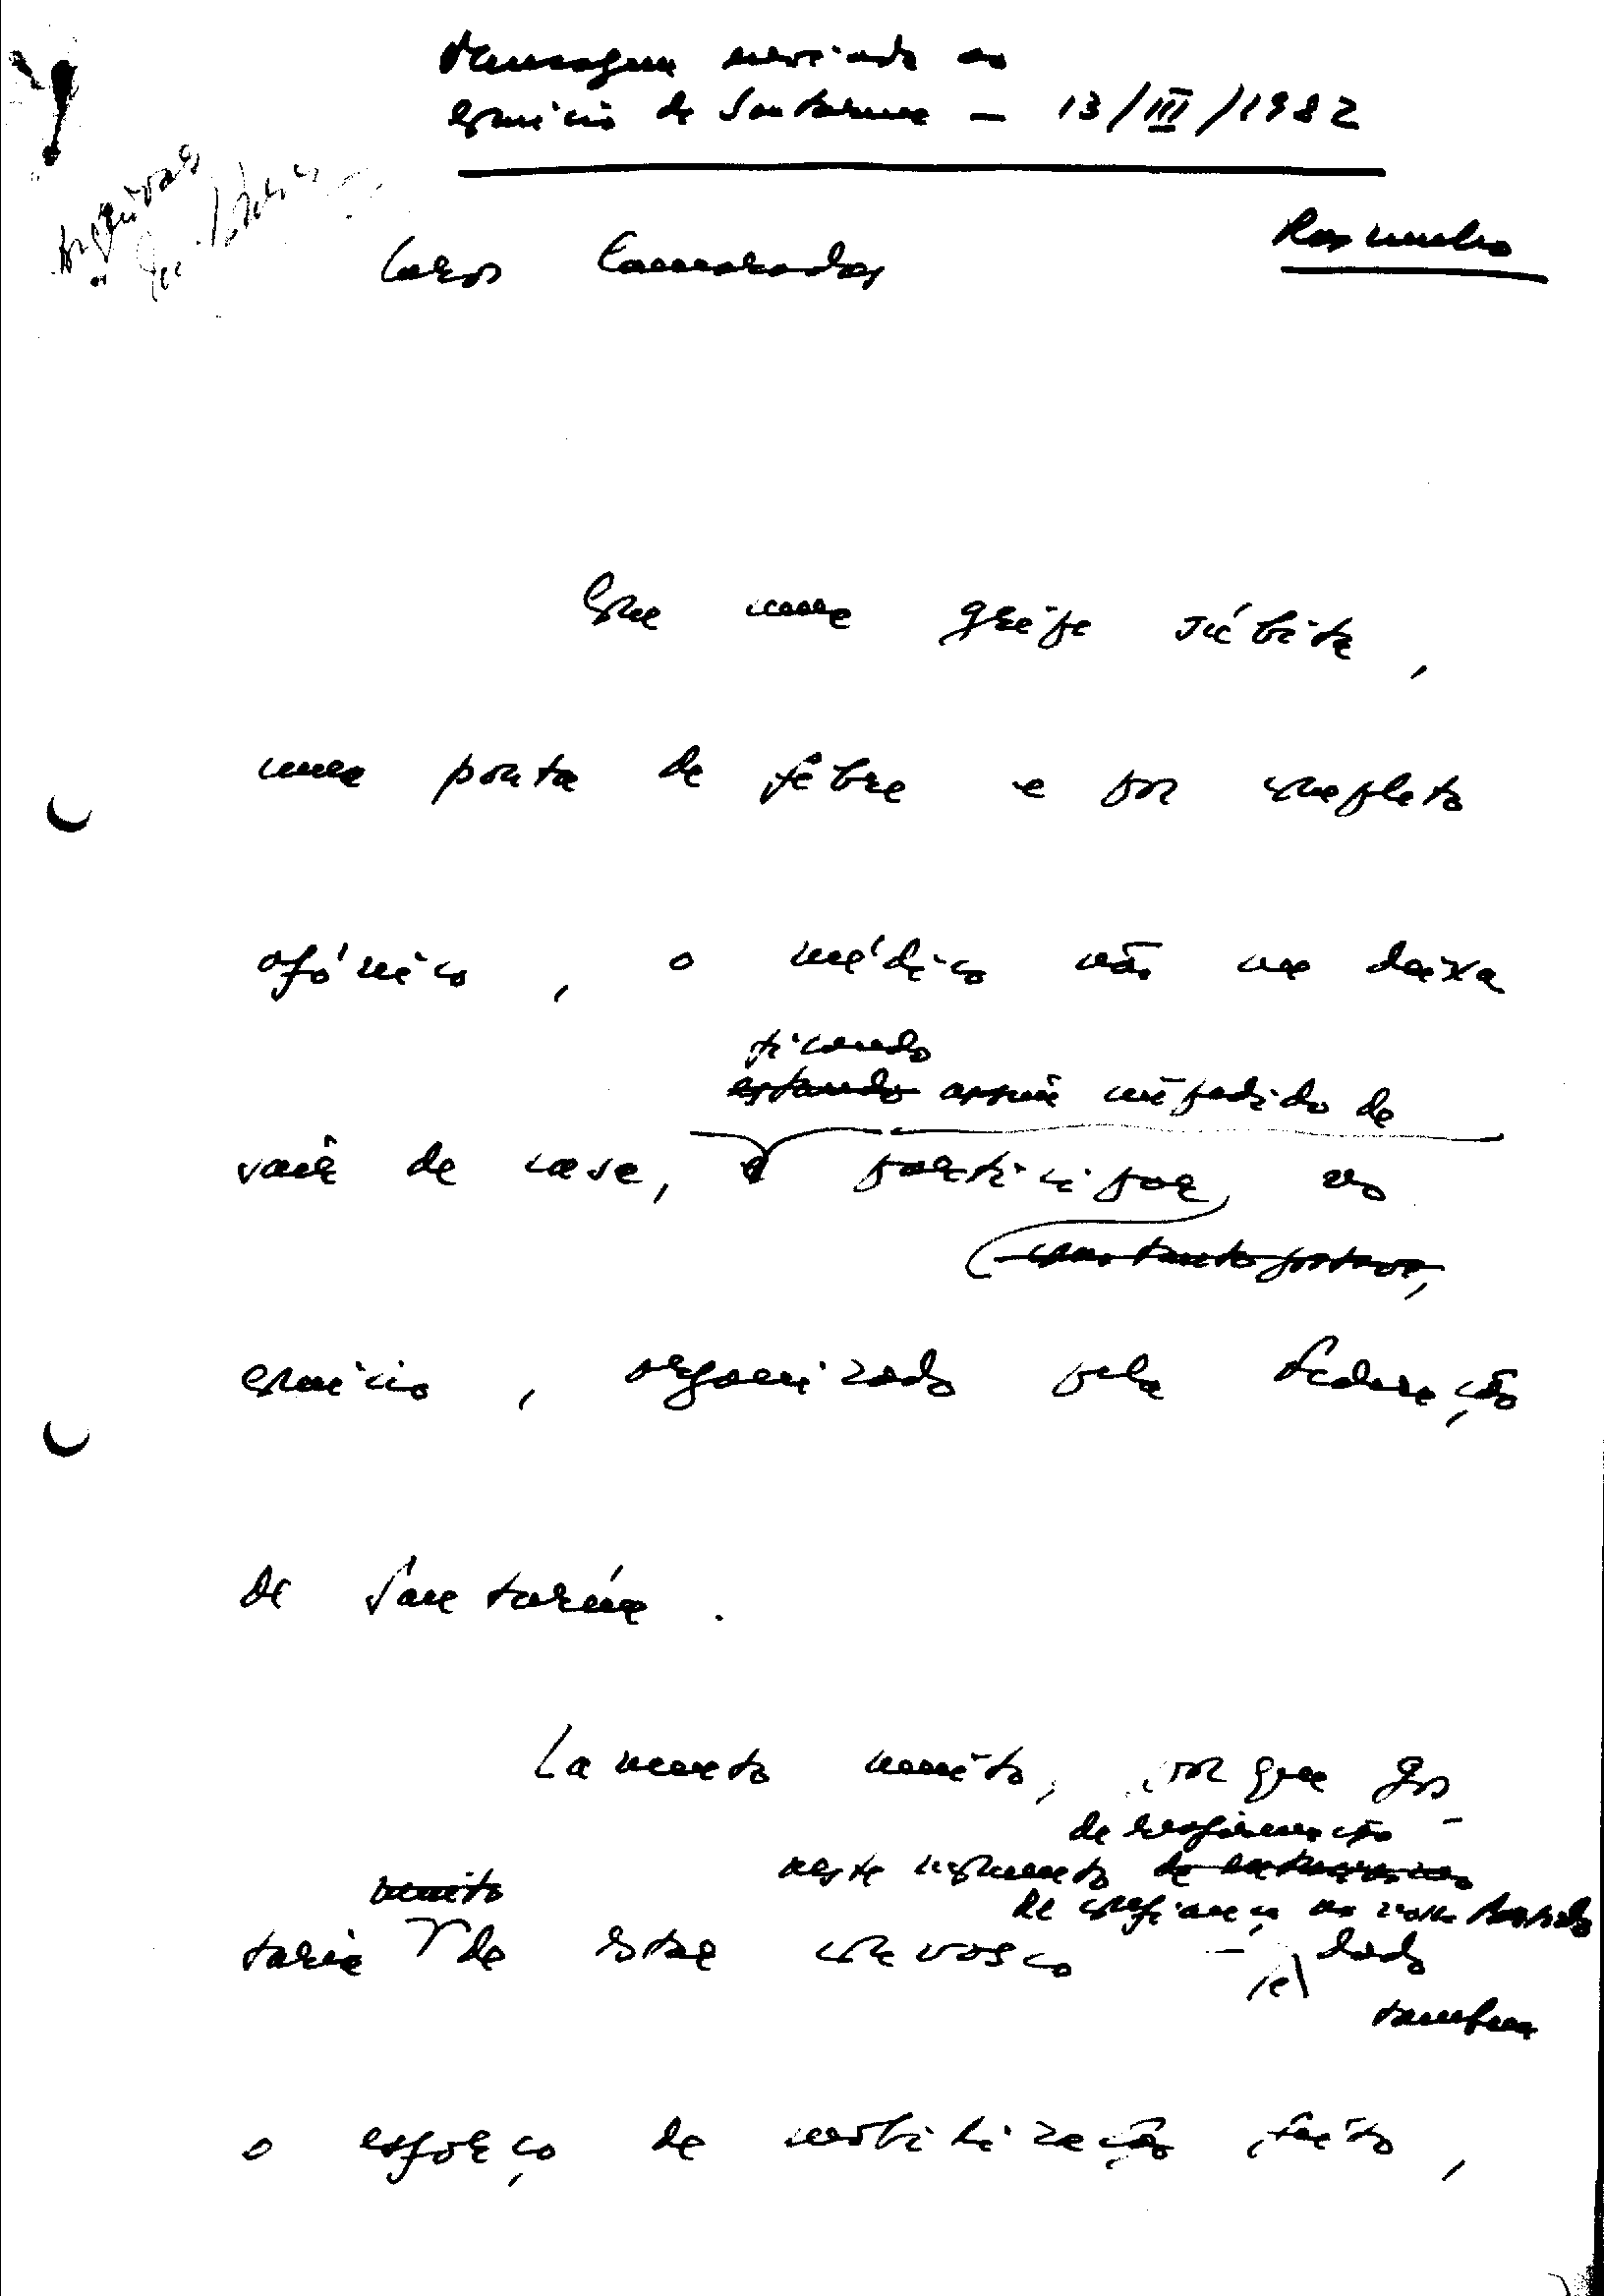 Mensagem enviada ao
comício de Santarém — 13/III/1982
Rascunho
Arquivar
Caros Camaradas
Com uma gripe súbita,
uma ponta de febre e por completo
afónico, o médico não me deixa
ficando
estando assim impedido de
sair de casa, e participar no
comício, organizado pela Federação
de Santarém.
Lamento muito, porque gos-
de reafirmação
muito neste momento de entusiasmo
de confiança no nosso Partido
taria de estar convosco — e dado
também
o esforço de mobilização feito,